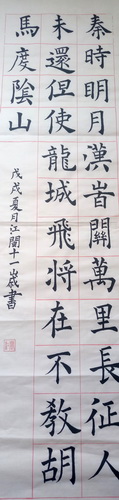 秦時明月漢峕關萬里長征人
未還但使龍城飛将在不教胡
馬度陰山
戊戌夏月江闓十一歲書